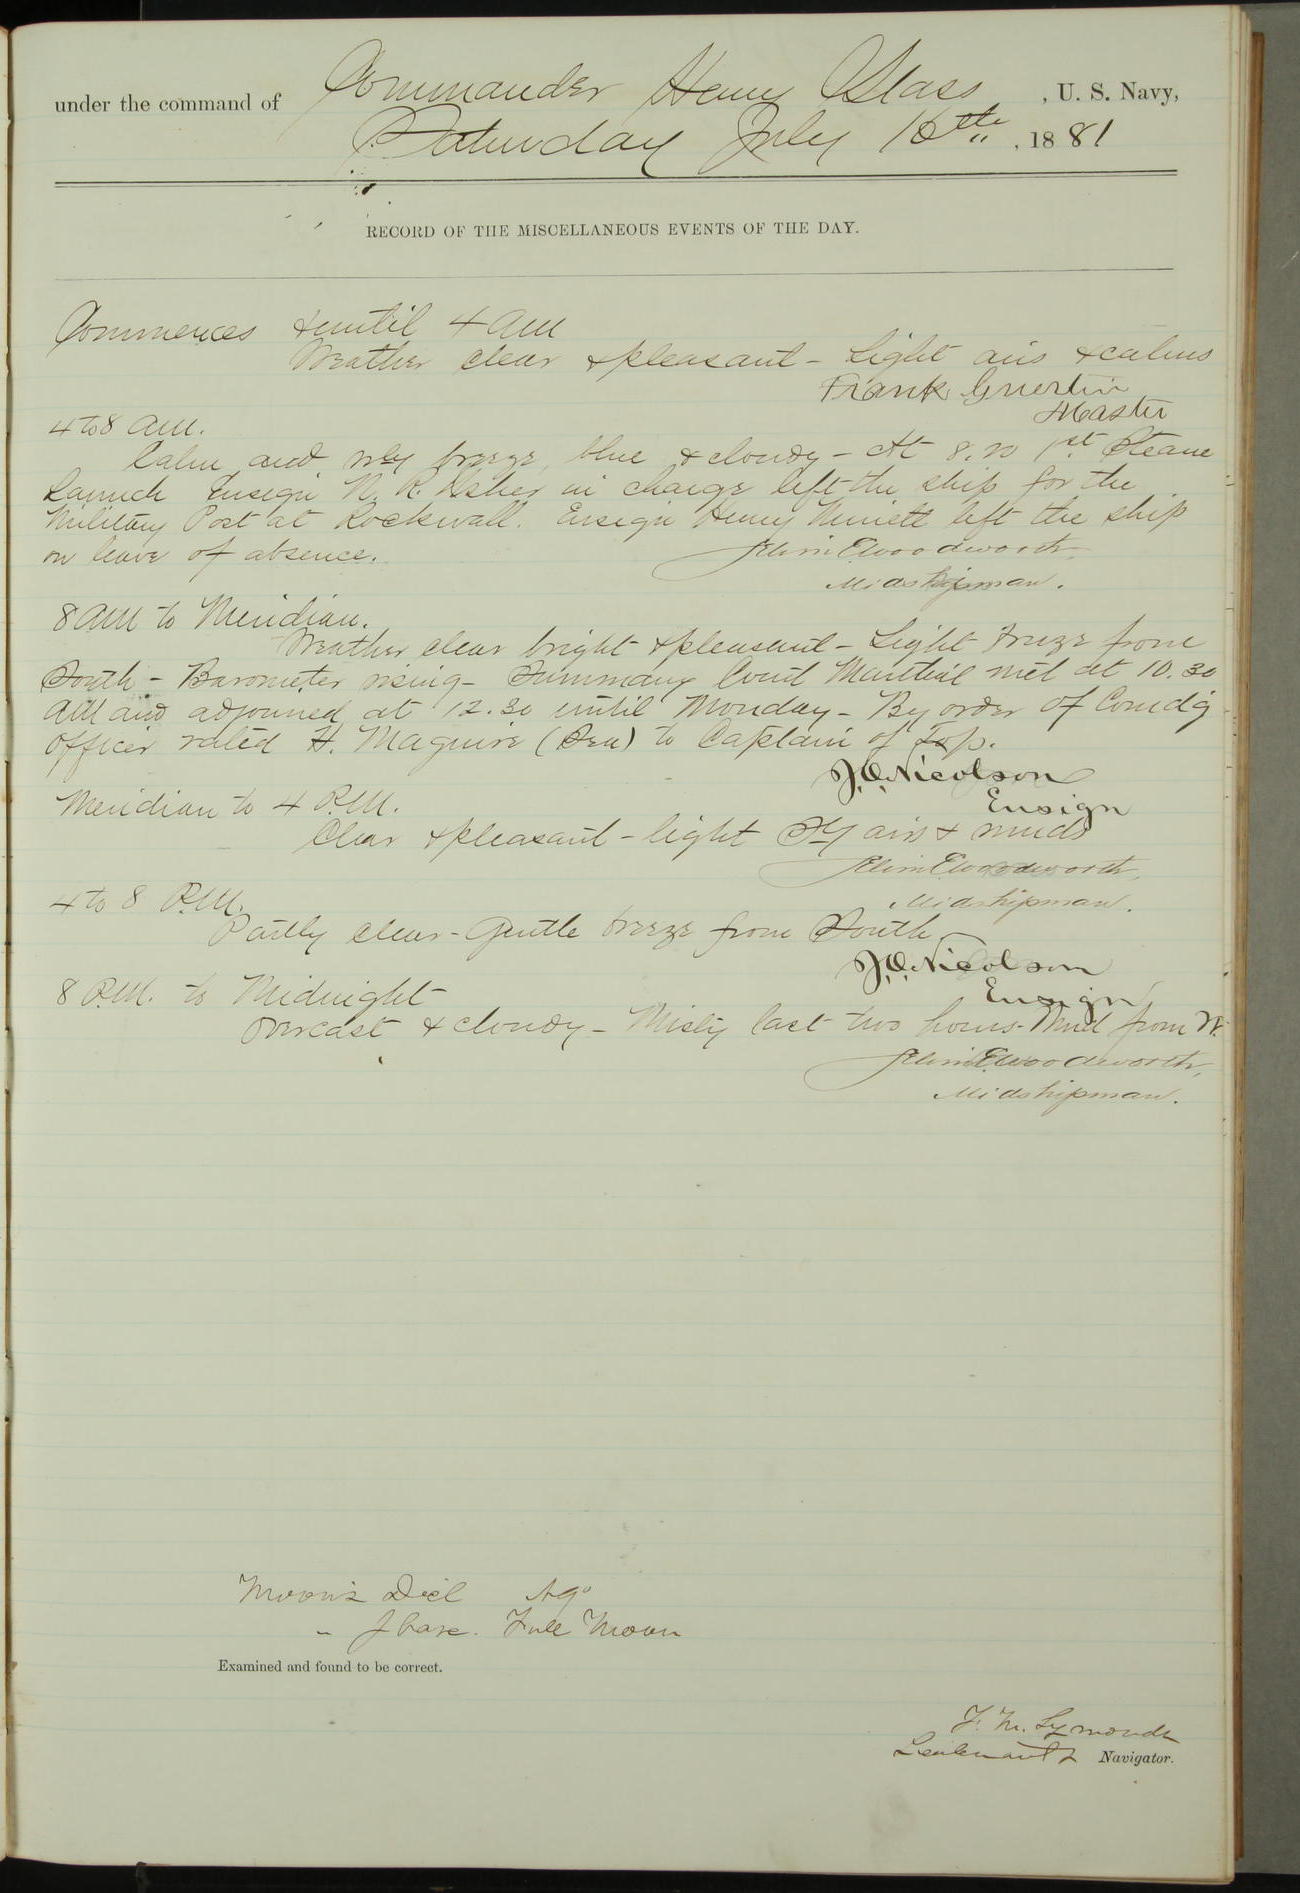 under the command of Commander Henry Glass, U. S. Navy,
Saturday July 16th, 1881
RECORD OF THE MISCELLANEOUS EVENTS OF THE DAY.
Commences & until 4 AM
Weather clear & pleasant - Light airs & calms
Frank Guertin
Master
4 to 8 AM.
Calm and breeze, blue & cloudy - At 8.20 1st Steam
Launch Ensign N. R. Usher in charge left the ship for the
Military Post at Rockwall. Ensign Henry Minett left the ship
on leave of absence.
Selim E Woodworth
Midshipman.
8 AM to Meridian.
Weather clear bright & pleasant - Light breeze from
South - Barometer rising - Summary Court Martial met at 10.30
AM and adjourned at 12.30 until Monday - By order of Comdg
Officer rated H. Maguire (Sea) to Captain of Top.
J.O. Nicolson
Ensign
Meridian to 4 P.M.
Clear & pleasant - light Sly airs & winds
Selim E Woodworth,
Midshipman.
4 to 8 P.M.
Partly clear - Gentle breeze from South
J.O. Nicolson
Ensign
8 P.M. to Midnight
Overcast & cloudy - Misty last two hours - Wind from W.
Selim E Woodworth,
Midshipman.
Moon's Decl
" Phase. Full Moon
Examined and found to be correct.
F. M. Symonds
Lieutenant & Navigator.